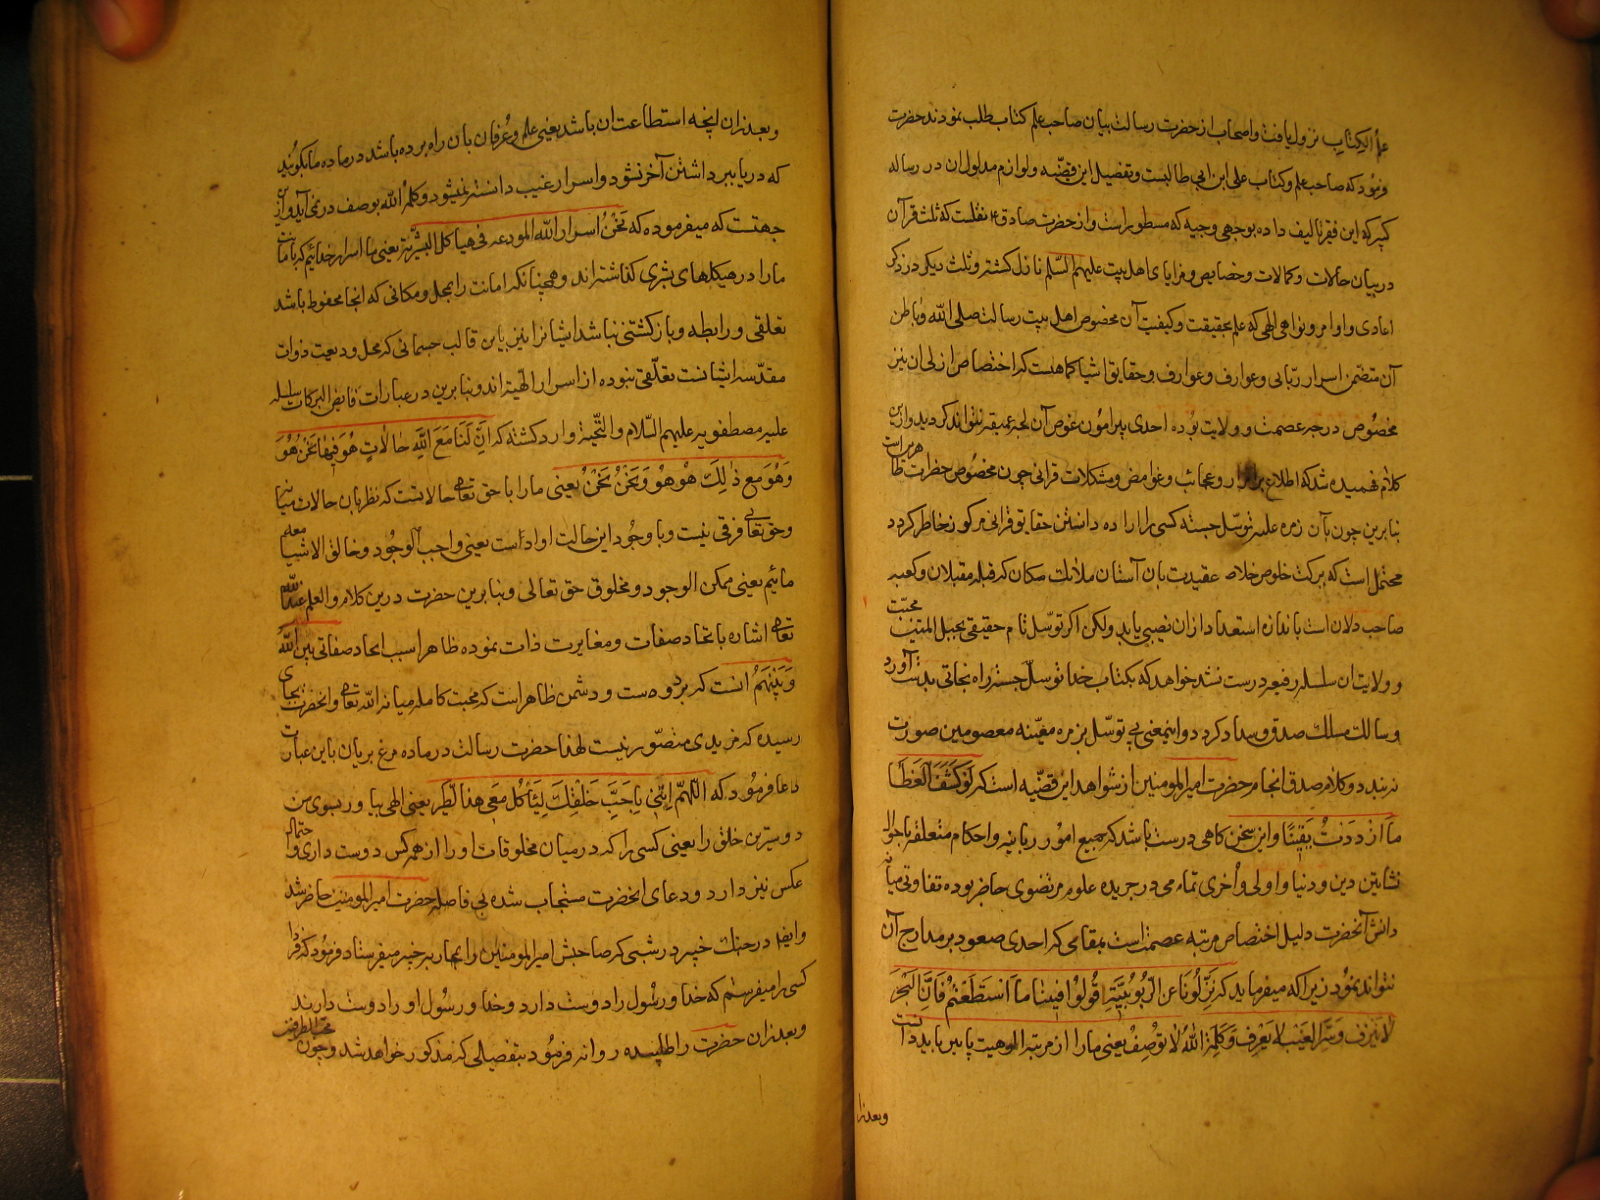 علم الکتاب نزول یافت و اصحاب از حضرت رسالت بیان صاحب علم کتاب طلب نمودند حضرت
فرمود که صاحب علم و کتاب علی ابن ابی طالبست و تفصیل این قضیّه و لوازم مدلول ان در رساله
کبیر که این فقیر تالیف داده بوجهی وجیه که مسطور است و از حضرت صادق ع نقلست که ثلث قرآن
در بیان حالات و کمالات و خصایص و مزایای اهل بیت علیهم السّلم نازل کشته و ثلث دیکر در ذکر
اعادی و اوامر و نواهی الهی که علم بحقیقت و کیفیت آن مخصوص اهل بیت رسالت صلی الله و باطن
آن متضمن اسرار ربّانی و عوارف و عوارف و حقایق اشیا کماهست که اختصاص ازلی ان نیز
مخصوص در جر عصمت و ولایت بوده احدی پیرامون غوص آن لجه عمیقه نتواند کردید و ازین
کلام فهمیده شد که اطلاع بر اسرار و عجائب و غوامض و مشکلات قرانی چون مخصوص حضرات طاهرین است
بنابرین چون بآن زمره علیه توسّل جسته کسی را اراده دانستن حقایق قرانی مرکوز خاطر کردد
محتمل است که ببرکت خلوص خلاصه عقیدت بان آستان ملائک مکان که قبله مقبلان و کعبه
صاحب دلان است باندازه استعداد از ان نصیبی یابد ولکن اکر توسّل تام حقیقی بحبل المتین محبّت
و ولایت ان سلسله رفیعه درست نشد خواهد که بکتاب خدا توسل جسته راه نجاتی بدست آورد
و سالک مسلک صدق و سداد کردد و اینمعنی بی توسّل بزمره معیّنه معصومین صورت
نبندد و کلام صدق انجام حضرت امیر المومنین از شواهد این قضیّه است که لَو کُشَفَ الغَطَا
مَا ازدَدتُ یَقِینًا و این سخن کاهی درست باشد که جمیع امور ربانیه و احکام متعلقه باحوال
نشاتین دین و دنیا و اولی و اُخری تمامی در جریده علوم مرتضوی حاضر بوده تفاوتی میانه
دانش آنحضرت دلیل اختصاص مرتبه عصمت است بمقامی که احدی صعود بر مدارج آن
نتواند نمود زیرا که میفرماید که نَزِّلُونَا عَنِ الرّبُوبیَّةِ و قُولُوا فِینَا مَا استَطَعتُم فَاِنَّ البَحرَ
لا یَنزِف وَ سِرَّ الغَیبِ لا یُعرَف وَ کَلِمَة اللهُ لا تُوصِف یعنی ما را از مرتبه الوهیت پایین باید دانست
و بعدزان
و بعدزان انچه استطاعت ان باشد یعنی علم و عُرفان بان راه برده باشد در ماده ما بکوئید
که دریا ببر داشتن آخر نشود و اسرار غیب دانسته نمیشود و کلمه الله بوصف در نمی آید و ازین
جهتت که میفرموده که نَحنُ اسرار الله المودعه فی هیاکل البَشَریّة یعنی ما اسرار خدائیم که بامانت
ما را در هیکلهای بشری کذاشته اند و همچنانکه امانت را بمحل و مکانی که انجا محفوظ باشد
تعلقی و رابطه و بازکشتی نباشد ایشانرا نیز باین قالب جسمانی که محل ودیعت ذوات
مقدّسه ایشانست تعلّقی نبوده از اسرار الهیّه اند و بنابرین در عبارات فایض البرکات سلسله
علیه مصطفویه علیهم السّلام و التّحیّة وارد کشته که اِنَّ لَنَا مَعَ اللهِ حالاتٍ هُوَ فِیهَا نَحنُ هُوَ
وَ هُوَ مَع ذلِکَ هُو هُو وَ نَحنُ نَحنُ یعنی ما را با حق تعالی حالاتست که نظر بان حالات میانه ما
و حق تعالی فرقی نیست و با وجود این حالت او اوست یعنی واجب الوجود و خالق الاشیا معه
مائیم یعنی ممکن الوجود و مخلوق حق تعالی و بنابرین حضرت درین کلام و العلم عندالله
تعالی اشاره باتحاد صفات و مغایرت ذات نموده ظاهرا سبب اتحاد صفاتی بین اللهُ
وَ بَینَهُم انست که بر دوست و دشمن ظاهر است که محبت کامله میانه الله تعالی و انحضرت بجای
رسیده که مزیدی متصّور نیست لهذا حضرت رسالت در ماده مرغ بریان باین عبارت
دعا فرمود که اللّهمّ اِیتِنی بِاَحَبِّ خَلقِکَ لِیَأکُلَ مَعِی هذا الطّیر یعنی الهی بیاور بسوی من
دوسترین خلق را یعنی کسی را که در میان مخلوقات او را از همه کس دوست داری و احتمال
عکس نیز دارد و دعای انحضرت مستجاب شده بی فاصله حضرت امیر المومنین حاضر شد
و ایضا در جنک خیبر در شبی که صاحبش امیر المومنین را بمحاربه خیبر میفرستاد فرمود که فردا
کسی را میفرستم که خدا و رسُول را دوست دارد و خدا و رسُول او را دوست دارند
و بعدزان حضرت را طلبیده روانه فرمُود بتفصیلی که مذکور خواهد شد و چون